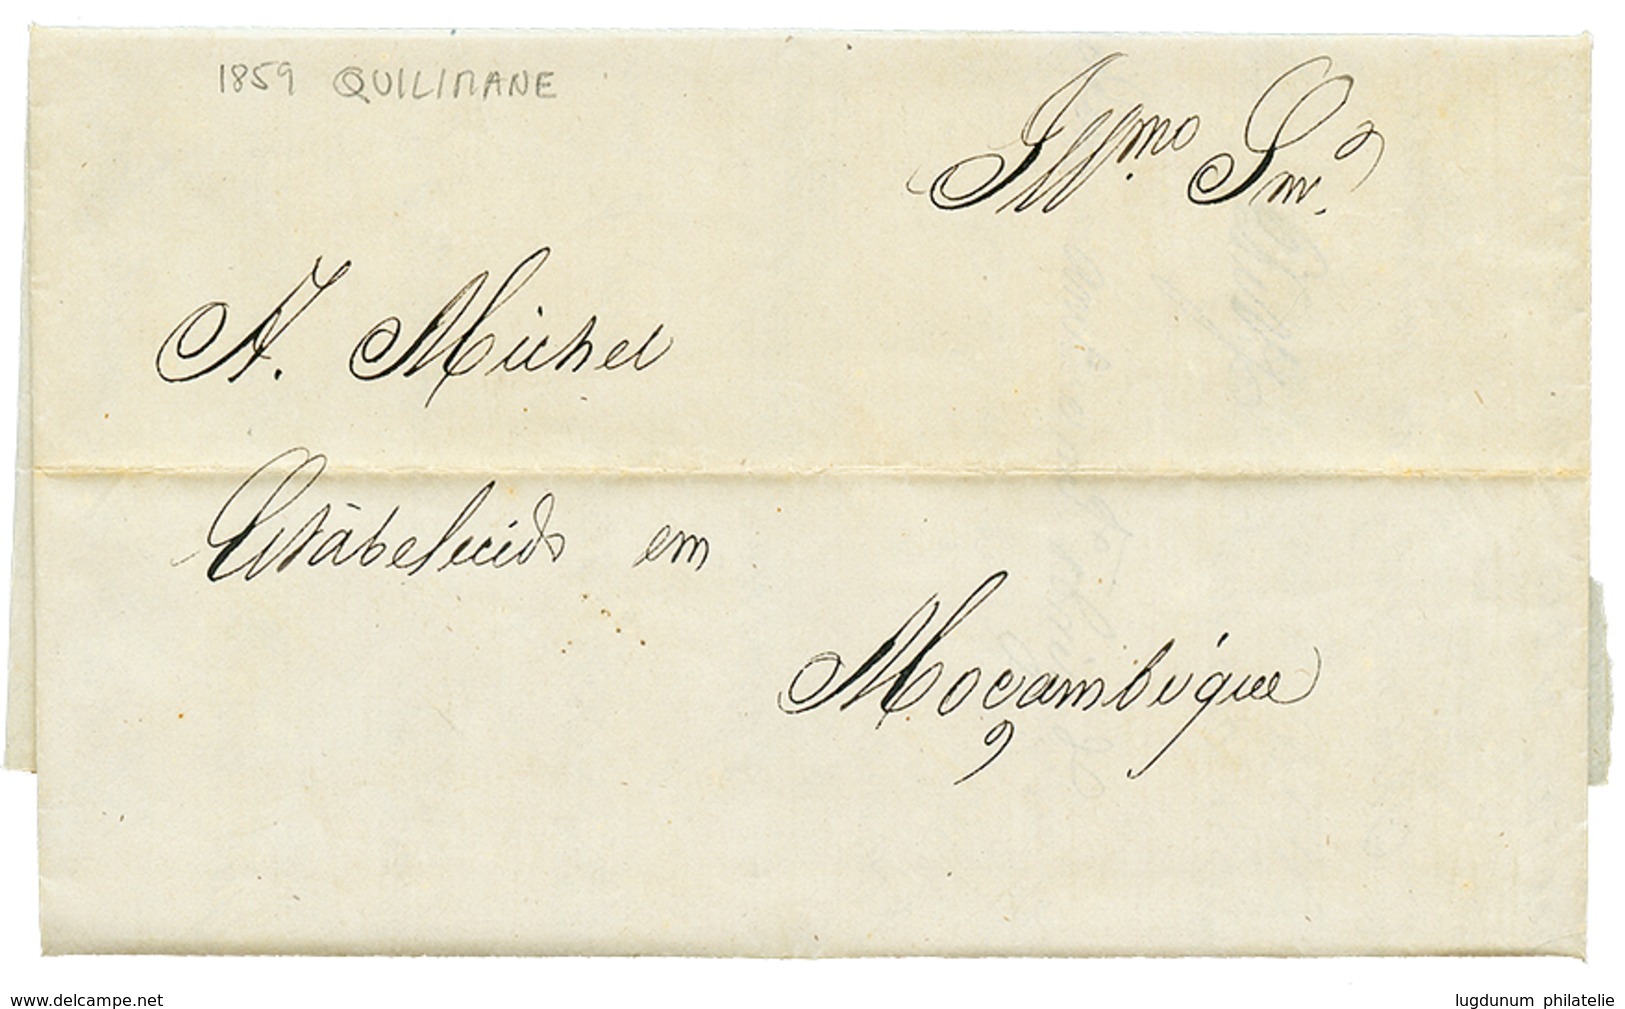 1859 QUILIMANE
Illmo. Snr.
A. Michel
Estàbelecido em
Moçambique
www.delcampe.net
lugdunum philatelie